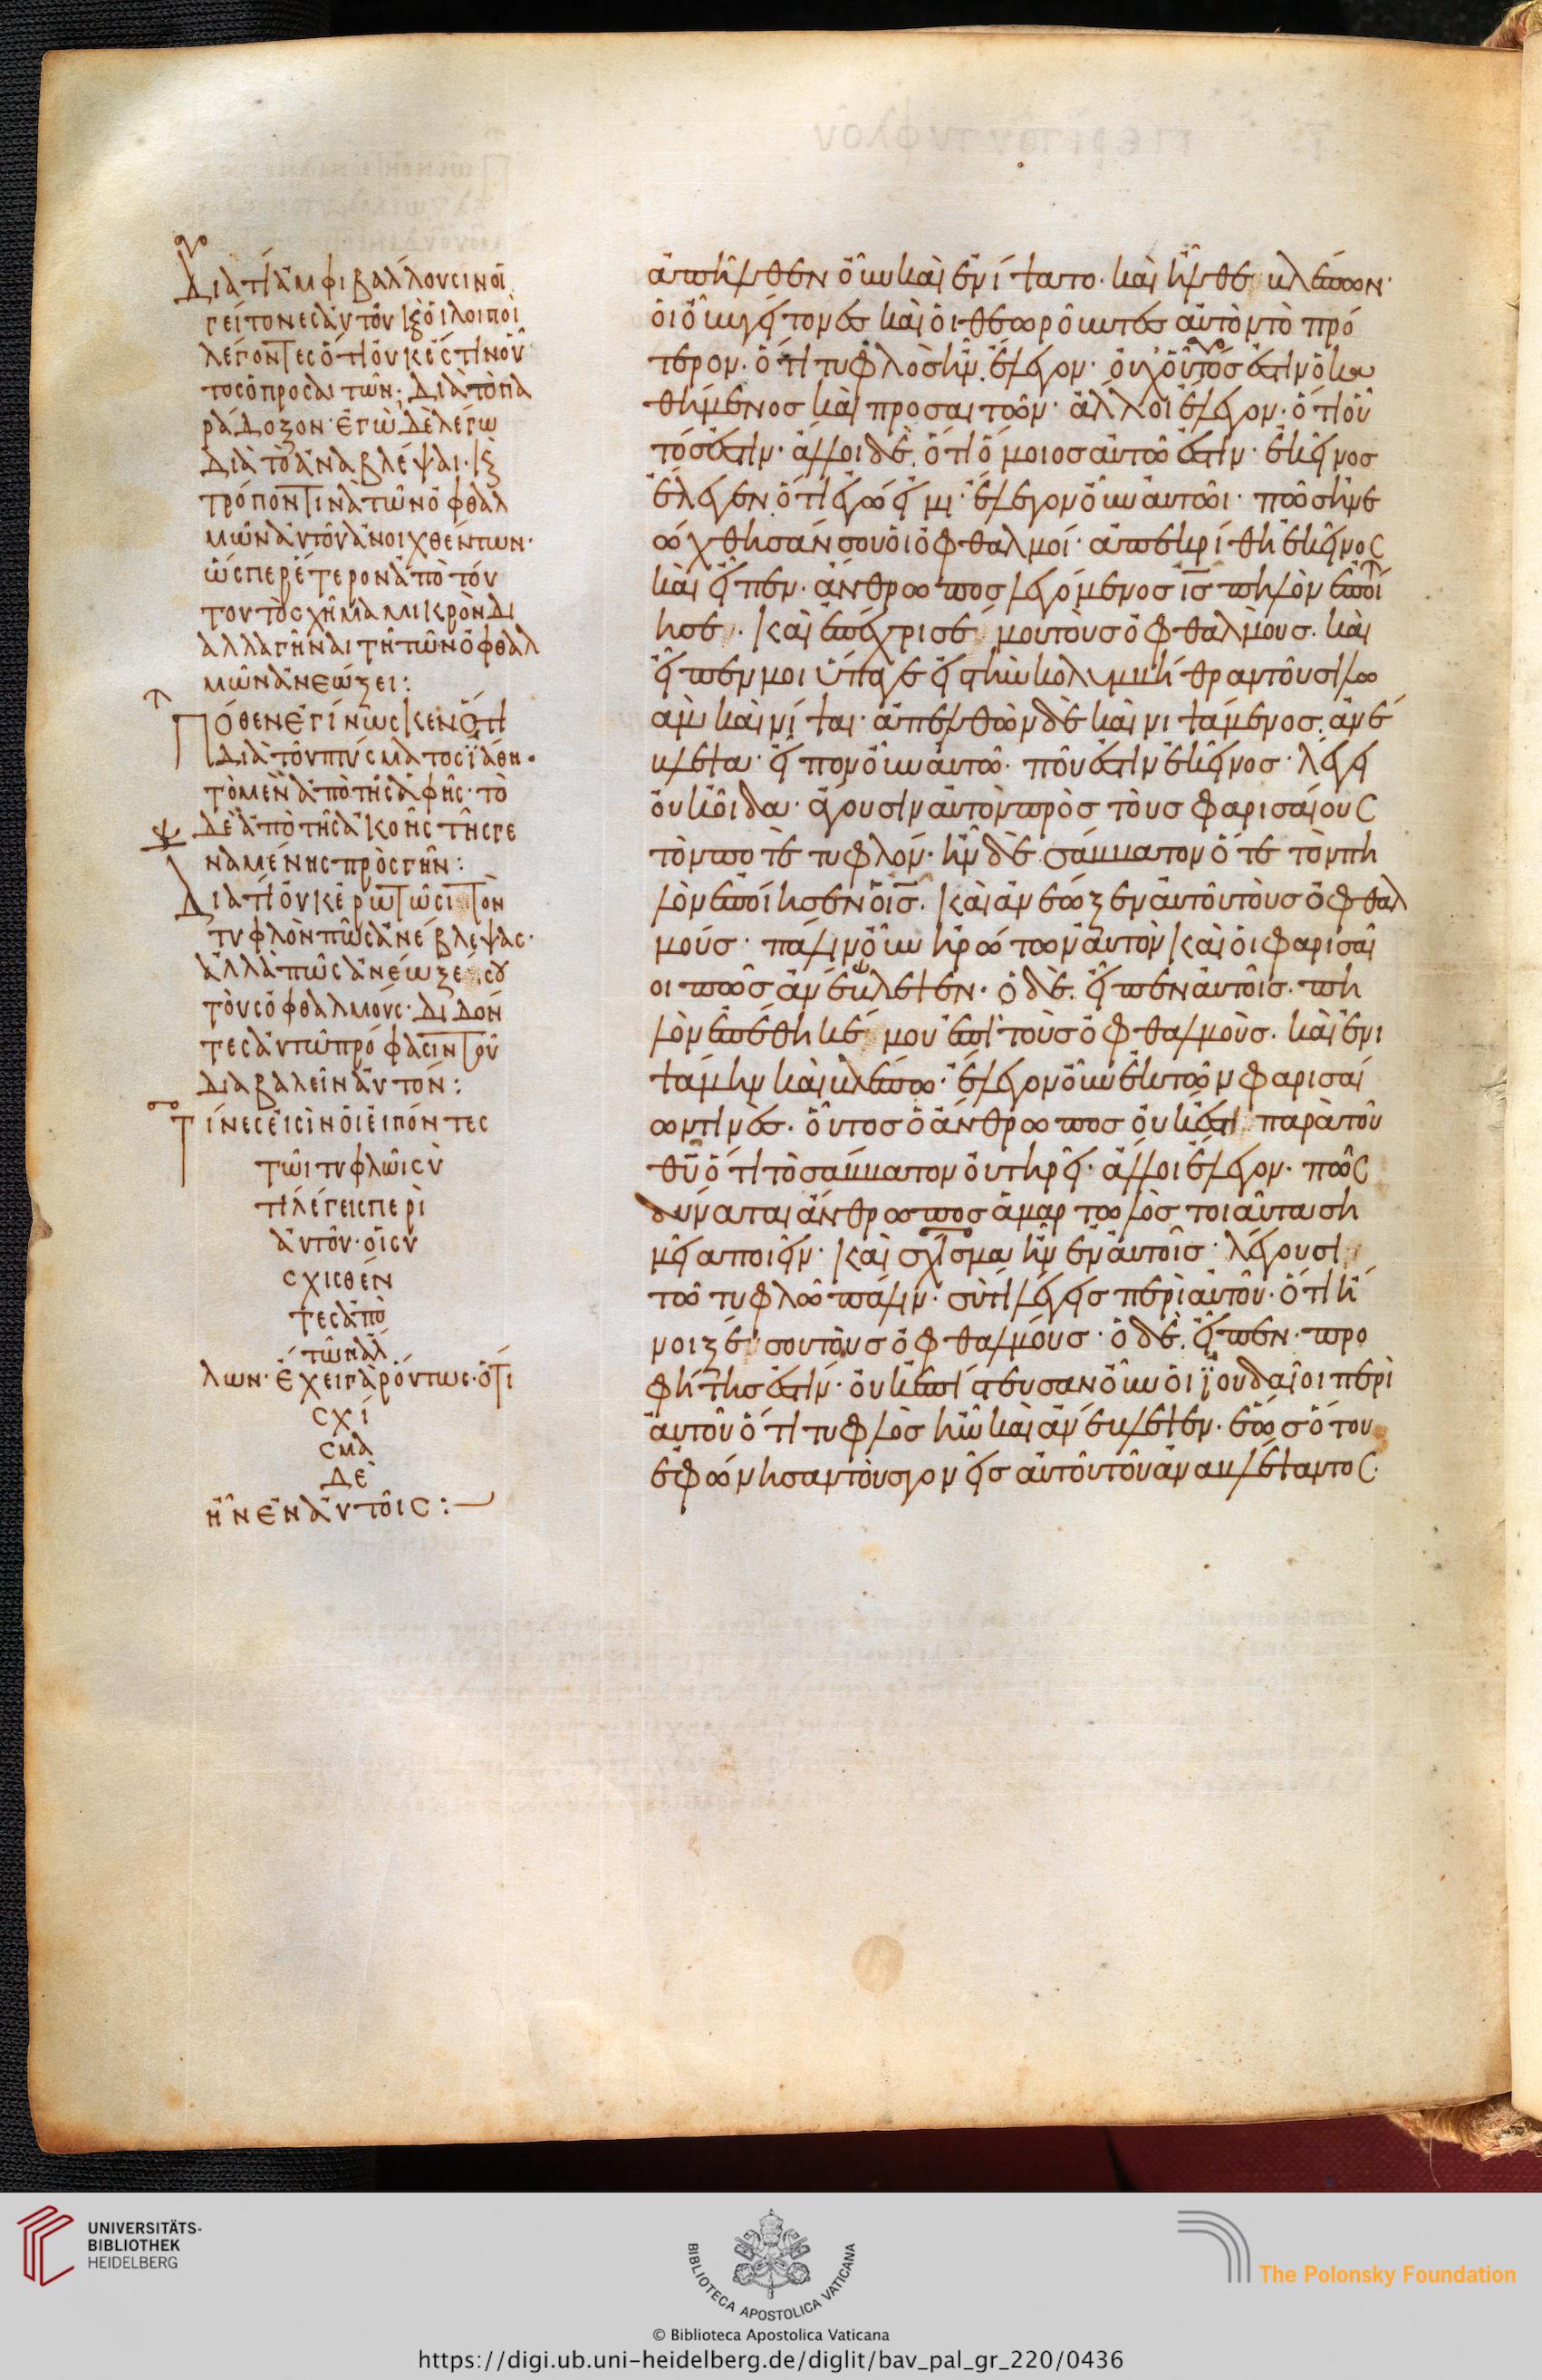 Διατί ἀμφιβάλλουσιν οἱ
γείτονες αὐτοῦ κ̀ οἱ λοιποὶ
λέγοντες ὅτι οὐκ ἔστιν οὗ
τος ὁ προσαιτῶν; διὰ τὸ πα
ράδοξον· ἐγὼ δὲ λέγω
διὰ τὸ ἀναβλέψαι· κ̀
τρόπον τινὰ τῶν ὀφθαλ
μῶν αὐτοῦ ἀνοιχθέντων·
ὥσπερ ἕτερον ἀπὸ τού
του τὸ σχῆμα μικρὸν δι
αλλαγῆναι τῆ τῶν ὀφθαλ
μῶν ἀνεώξει:
Πόθεν ἐγίνωσκεν ὅτι
διὰ τοῦ πτύσματος ἰάθη·
τὸ μὲν ἀπὸ τῆς ἁφῆς· τὸ
δὲ ἀπὸ τῆς ἀκοῆς τῆς γε
ναμένης πρὸς γῆν:
Διατί οὐκ ἐρωτῶσι τὸν
τυφλὸν πῶς ἀνέβλεψας·
ἀλλὰ πῶς ἀνέωξέ σου
τοὺς ὀφθαλμούς· διδόν
τες αὐτῶ πρόφασιν τοῦ
διαβαλεῖν αὐτόν:
Τίνες εἰσὶν οἱ εἰπόντες
τῶι τυφλῶι σὺ
τί λέγεις περὶ
αὐτοῦ· οἱ συ
σχισθέν
τες ἀπὸ
τῶν ἄλ
λων· ἔχει γὰρ όντως· ὅτι
σχί
σμα
δὲ
ἦν ἐν αὐτοῖς:
ἀπῆλθεν οὖν καὶ ἐνίψατο· καὶ ἦλθε βλέπων·
οἱ οὖν γείτονες καὶ οἱ θεωροῦντες αὐτὸν τὸ πρό
τερον· ὅτι τυφλὸς ἦν. ἔλεγον· οὐχ οὗτός ἐστιν ὁ κα
θήμενος καὶ προσαιτῶν· ἄλλοι ἔλεγον· ὅτι οὗ
τός ἐστιν· ἄλλοι δὲ. ὅτι ὅμοιος αὐτῶ ἐστιν· ἐκεῖνος
ἔλεγεν ὅτι ἐγώ εἰμι· ἔλεγον οὖν αὐτῶι· πῶς ἠνε
ώχθησάν σου οἱ ὀφθαλμοί· ἀπεκρίθη ἐκεῖνος
καὶ εἶπεν· ἄνθρωπος λεγόμενος ι̅ς̅ πηλὸν ἐποί
ησε· καὶ ἐπέχρισέ μου τοὺς ὀφθαλμούς. καὶ
εἶπεν μοι ὕπαγε εἰς τὴν κολυμβήθραν τοῦ σιλω
ὰμ καὶ νίψαι· ἀπελθὼν δὲ καὶ νιψάμενος. ἀνέ
βλεψα· εἶπον οὖν αὐτῶ· ποῦ ἐστιν ἐκεῖνος· λέγει
οὐκ οἶδα· ἄγουσιν αὐτὸν πρὸς τοὺς φαρισαίους
τόν ποτε τυφλόν· ἦν δὲ σάββατον ὅτε τὸν πη
λὸν ἐποίησεν ὁ ι̅ς̅. καὶ ἀνέωξεν αὐτοῦ τοὺς ὀφθαλ
μούς· πάλιν οὖν ἠρώτων αὐτὸν καὶ οἱ φαρισαῖ
οι πῶς ἀνέβλεψεν· ὁ δὲ. εἶπεν αὐτοῖς· πη
λὸν ἐπέθηκέ μου ἐπὶ τοὺς ὀφθαλμοὺς. καὶ ἐνι
ψάμην καὶ βλέπω· ἔλεγον οὖν ἐκ τῶν φαρισαί
ων τινὲς. οὗτος ὁ ἄνθρωπος οὐκ ἔστι παρὰ τοῦ
θ̅υ̅ ὅτι τὸ σάββατον οὐ τηρεῖ· ἄλλοι ἔλεγον· πῶς
δύναται ἄνθρωπος ἁμαρτωλὸς τοιαῦτα ση
μεῖα ποιεῖν· καὶ σχίσμα ἦν ἐν αὐτοῖς· λέγουσι
τῶ τυφλῶ πάλιν· σὺ τί λέγεις περὶ αὐτοῦ· ὅτι ἤ
νοιξέ σου τοὺς ὀφθαλμούς· ὁ δὲ. εἶπεν· προ
φήτης ἐστίν· οὐκ ἐπίστευσαν οὖν οἱ ἰουδαῖοι περὶ
αὐτοῦ ὅτι τυφλὸς ἦν καὶ ἀνέβλεψεν· ἕως ὅτου
ἐφώνησαν τοὺς γονεῖς αὐτοῦ τοῦ ἀναβλέψαντος·
UNIVERSITÄTS-
BIBLIOTHEK
HEIDELBERG
BIBLIOTECA APOSTOLICA VATICANA
The Polonsky Foundation
© Biblioteca Apostolica Vaticana
https://digi.ub.uni-heidelberg.de/diglit/bav_pal_gr_220/0436